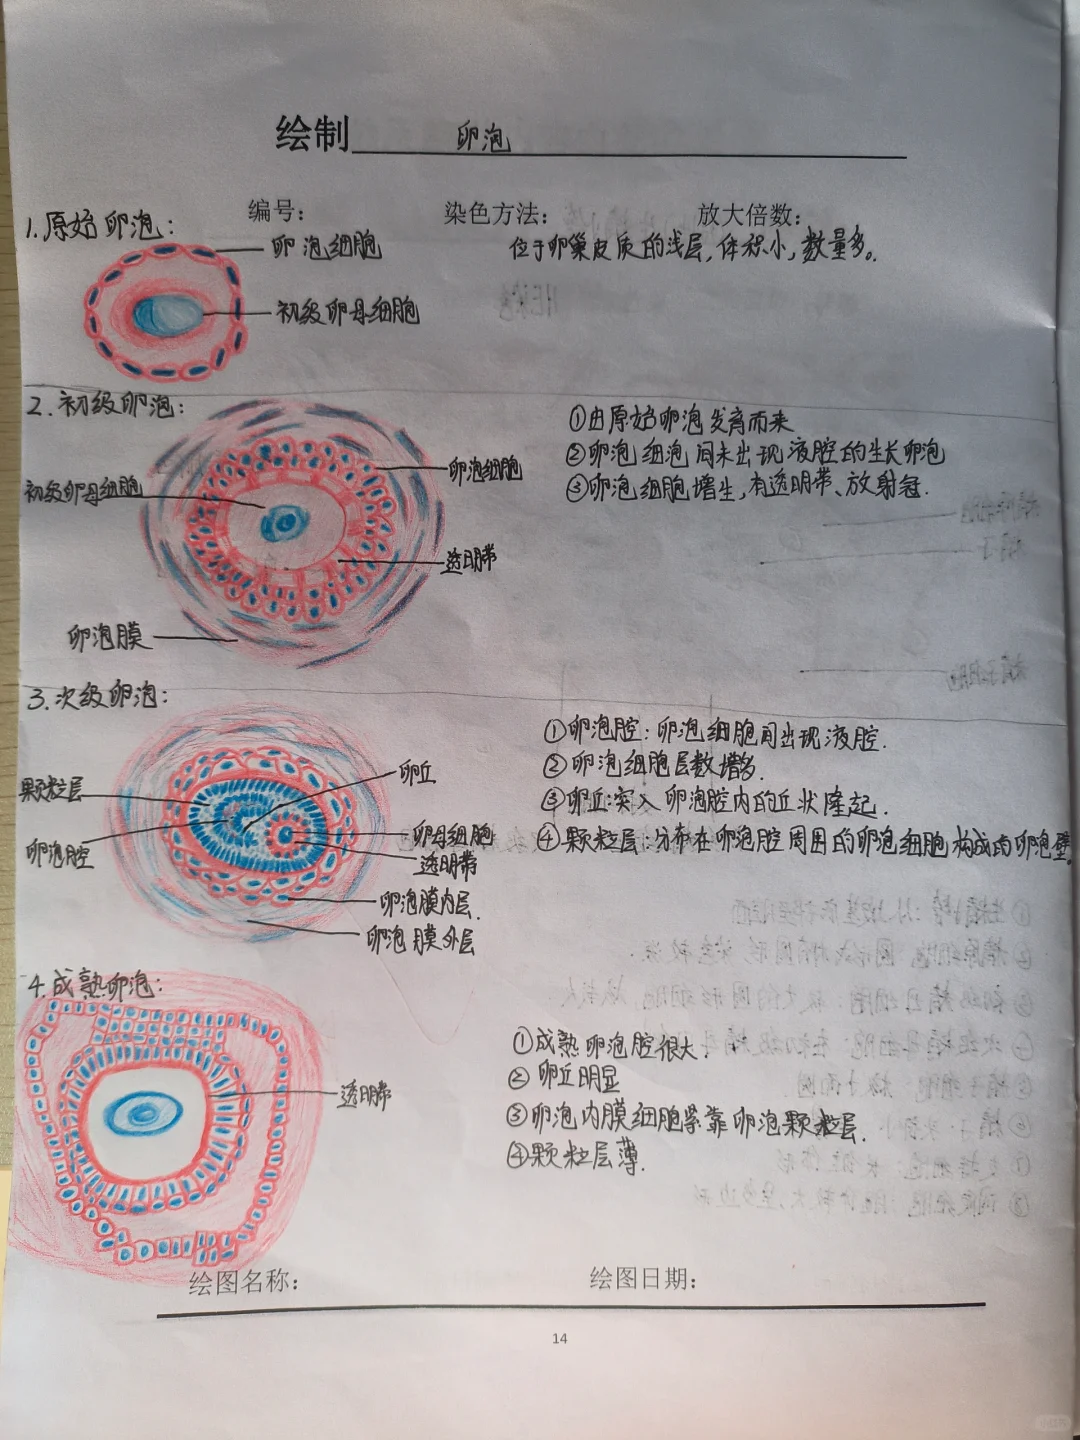 绘制 卵泡
编号： 染色方法： 放大倍数：
1.原始卵泡：
卵泡细胞
位于卵巢皮质的浅层，体积小，数量多。
初级卵母细胞
HE染色
2.初级卵泡：
①由原始卵泡发育而来
②卵泡细泡间未出现液腔的生长卵泡
③卵泡细胞增生，有透明带、放射冠.
卵泡细胞
初级卵母细胞
透明带
卵泡膜
3.次级卵泡：
①卵泡腔：卵泡细胞间出现液腔.
②卵泡细胞层数增多.
③卵丘：突入卵泡腔内的丘状隆起.
④颗粒层：分布在卵泡腔周围的卵泡细胞构成的卵泡壁
卵丘
颗粒层
卵泡腔
卵母细胞
透明带
卵泡膜内层.
卵泡膜外层
4.成熟卵泡：
①成熟卵泡腔很大.
②卵丘明显
③卵泡内膜细胞紧靠卵泡颗粒层.
④颗粒层薄.
透明带
绘图名称： 绘图日期：
14